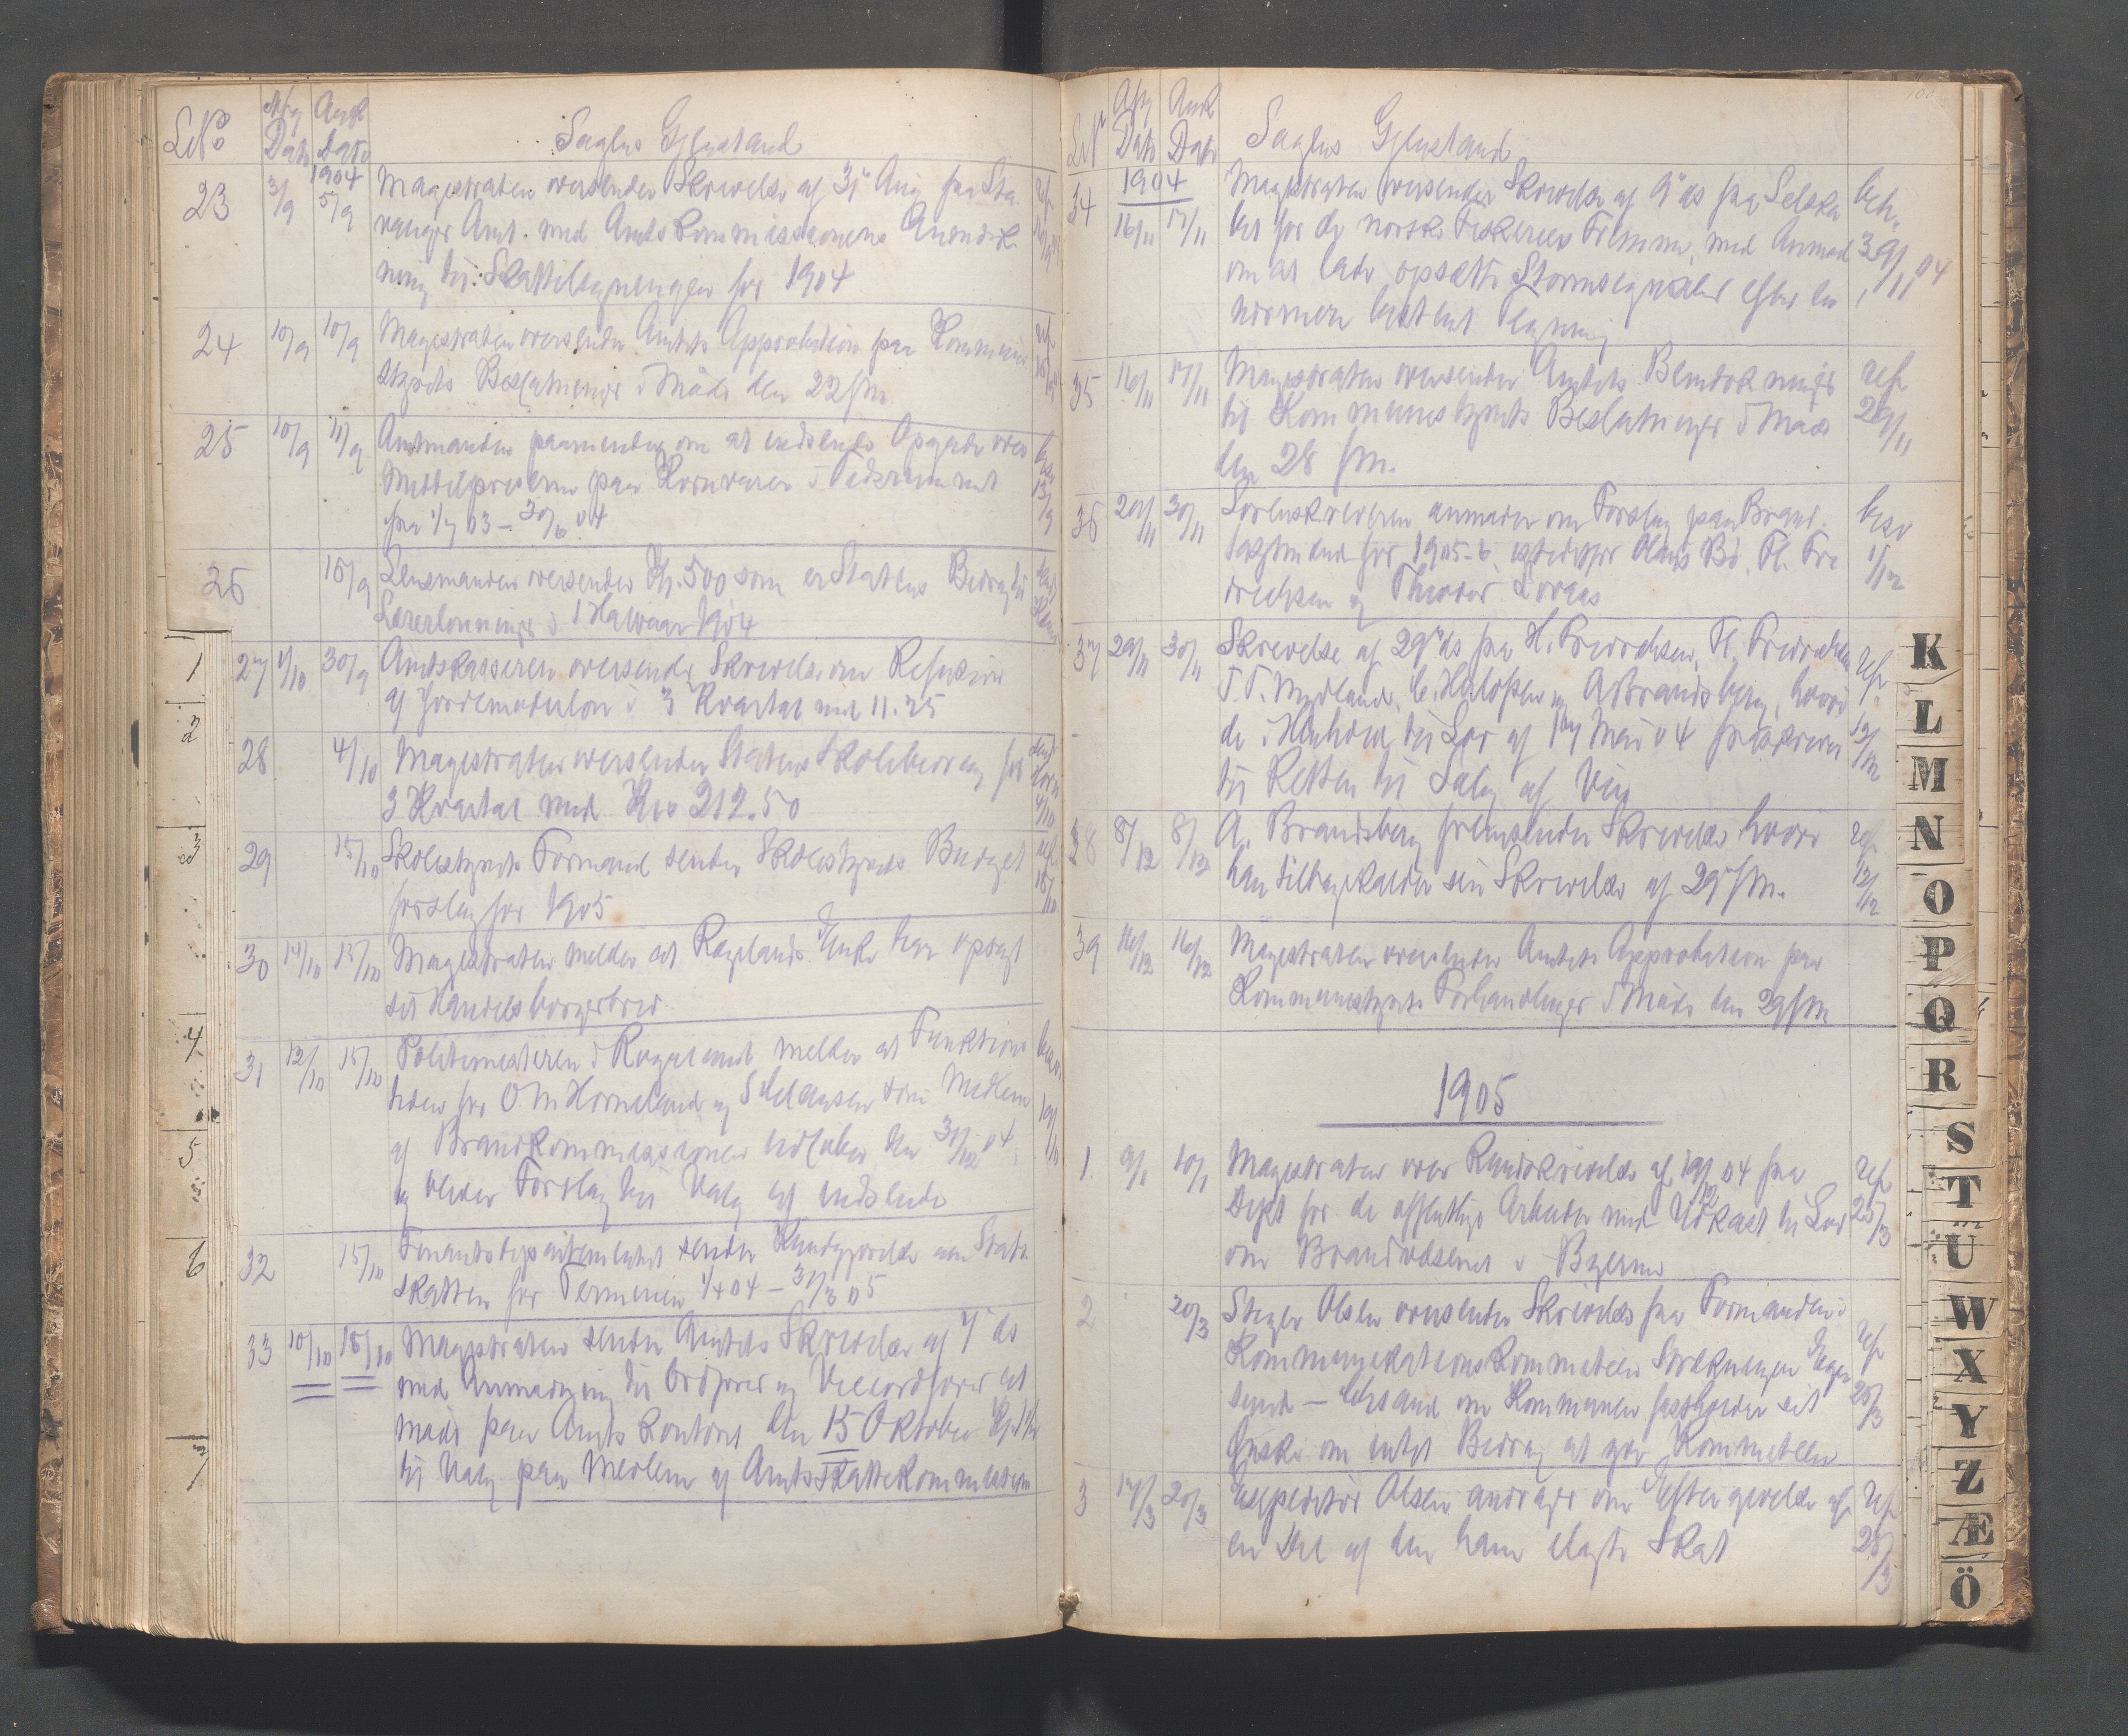 LNo Afg Dato Ank Dato Sagens Gjenstand
1904
23 3/9 5/9 Magistraten oversender Skrivelse af 31te Aug fra Sta-
vanger Amt med Amtskommissionens Anmærk-
ning til Skatteligningen for 1904
24 10/9 10/9 Magistraten oversender Amtets Approbation paa Kommune
styrets Beslutninger i Møde den 22 f.m.
25 10/9 11/9 Amtmanden paaminder om at indsende Opgave over
Middelpriserne paa Kornvarer i Tidsrummet
fra 1/7 03 – 30/6 04
besv 13/9
26 15/9 Lensmanden oversender Kr. 500 som er Statens Bidrag til
Lærerlønninger i 1 Halvaar 1904
27 1/10 30/9 Amtskasseren oversender Skrivelse om Refusion
af Jordemoderløn i 3 Kvartal med 11.25
28 4/10 Magistraten oversender Statens Skolebidrag for
3 Kvartal med Kr 212.50
4/10
29 15/10 Skolestyrets Formand sender Skolestyrets Budget
forslag for 1905
ref 15/10
30 14/10 15/10 Magistraten melder at Røglands Enke har opsagt
sit Handelsborgerbrev
31 12/10 15/10 Politimesteren i Rogaland melder at Funktions
tiden for O. M. Horneland og som Medlem
af Brandkommissionen udløber den 31/12 04,
og beder Forslag til Valg at indsende
32 15/10 Finantsdepartementet sender Kundgjørelse om Stats
skatten for Terminen 1/4 04 – 31/3 05
33 10/10 15/10 Magistraten sender Amtets Skrivelse af 7de ds
med Anmodning til Ordfører og Viceordfører at
møde paa Amtskontoret den 15 Oktober
til Valg paa Medlem af Amtsskattekommission
1
2
3
4
5
6
7
LNo Afg Dato Ank Dato Sagens Gjenstand
1904
34 16/11 17/11 Magistraten oversender Skrivelse af 9de ds fra Selska
bet for de norske Fiskeriers Fremme, med Anmod
om at lade opsætte Stormsignaler efter en
nærmere bestemt Tegning
beh. 29/11 04
35 16/11 17/11 Magistraten oversender Amtets Bemærkninger
til Kommunestyrets Beslutninger i Møde
den 28 f.m.
ref 29/11
36 29/11 30/11 Sorenskriveren anmoder om Forslag paa Brand-
takstmænd for 1905-6, istedetfor Olaus Bø, Fl. Fre
drichsen og Theodor
besv 1/12
37 29/11 30/11 Skrivelse af 29de ds fra H. Fredrichsen, Fl. Fredrichsen
T. T. Mydland, og A. Brandsberg, hvori
de i Henhold til Lov af 17 Mai 04 frasiger
til Retten til Salg af Vin
ref 12/12
38 8/12 8/12 A. Brandsberg fremsender Skrivelse hvori
han tilbagekalder sin Skrivelse af 29de f.m.
ref 12/12
39 16/12 16/12 Magistraten oversender Amtets Approbation paa
Kommunestyrets Forhandlinger i Møde den 29 f.m
1905
1. 9/1 10/1 Magistraten over Rundskrivelse af 19/12 04 fra
Dept for de offentlige Arbeider med Udkast til Lov
om Brandvæsenet i Byerne
ref 25/3
2 20/3 Styger Olsen oversender Skrivelse fra Formanden i
Kommunikationskommiteen Strækningen Eger
sund – om Kommunen fastholder sit
Ønske om intet Bidrag at yde Kommiteen
ref 25/3
3 17/3 20/3 Expeditør Olsen andrager om Eftergivelse af
en Del af den ham ilagte Skat
ref 25/3
K
L
M
N
O
P
Q
R
S
T
U
W
X
Y
Z
Æ
Ö